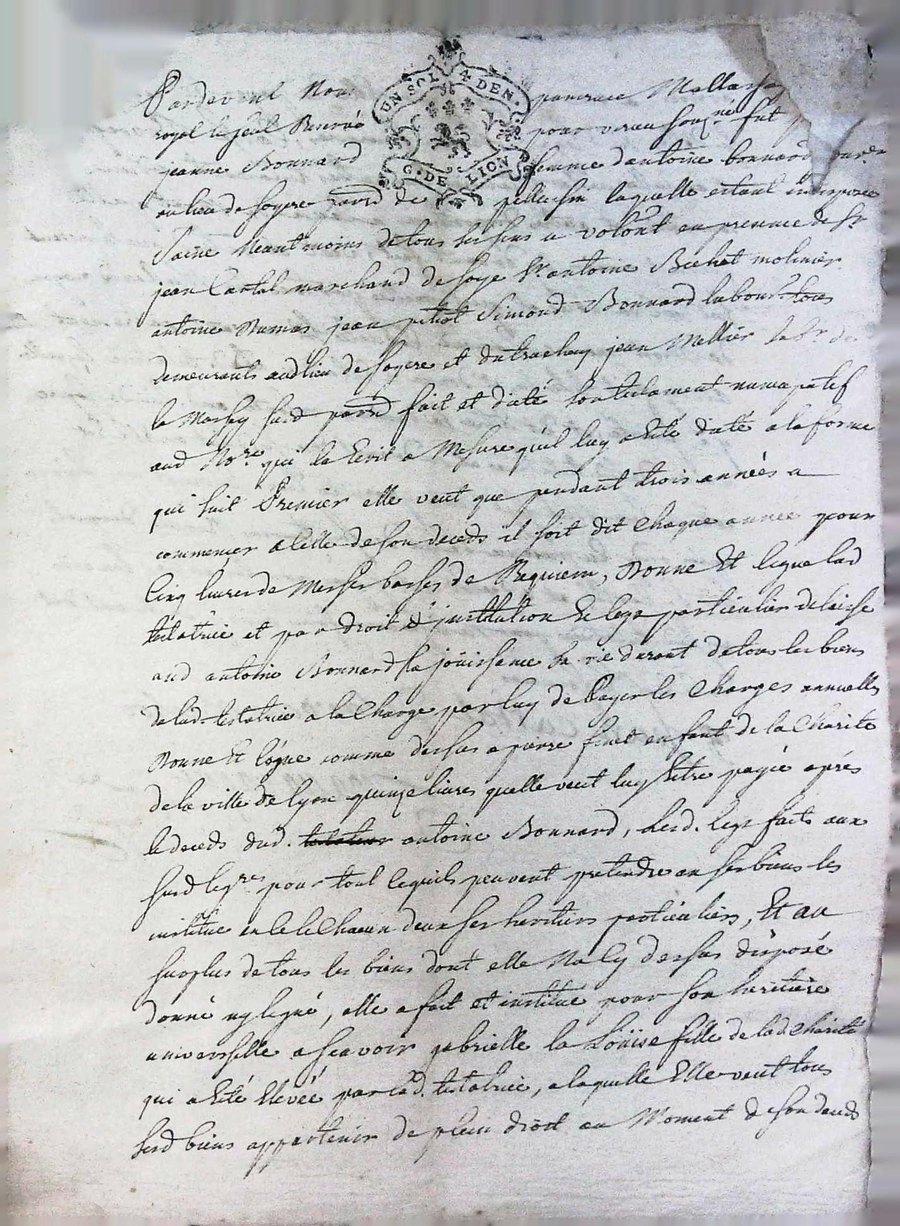 UN SOL 4 DEN.
G. DE LION
Pardevant Nou pancrace Mallassa
royal le seul Reservé pour vereau souz.né fut
jeanne Bonnard femme d'antoine bonnard
au lieu de soyere de pellussin laquelle estant indisposée
Saine Neantmoins de tous ses sens a volont en presence de Sr
jean Cartal marchand de soye Sr antoine Bechet molinier
antoine Dumas jean petiot Simond Bonnard labour.
demeurants audlieu de soyere et jean Mellier
le fait et dicté son testament nuncupatif
aud No.re qui la Ecrit a Mesure qu'il luy a Eté dicté a la forme
qui suit Premier elle veut que pendant trois années a
commencer a Celle de son deceds il soit dit Chaque année pour
Cinq livres de Messes basses de Requiem, Donne Et legue lad
testatrice et par droit d'institution Et legs particulier delaisse
aud antoine Bonnard la joüissance sa vie durant de tous les biens
de lad. testatrice a la Charge par luy de Payer les Charges annuelles
Donne Et légue comme dessus a pierre finet enfant de la Charité
de la ville de lyon quinze livres quelle veut luy Estre payée aprés
le deceds dud. testateur antoine Bonnard, lesd. legs faits aux
susd leg.res pour tout ce qu'ils peuvent pretendre en ses biens les
institue en ce le Chacun deux ses heritiers particuliers, Et au
surplus de tous les biens dont elle Na Cy dessus disposé
donné ny legué, elle a fait et institue pour son heritiere
universelle a scavoir gabrielle la Loüise fille de lad Charité
qui a Eté Elevée par lad. testatrice, a laquelle Elle veut tous
sesd biens appartenir de plein droit au Moment de son deceds